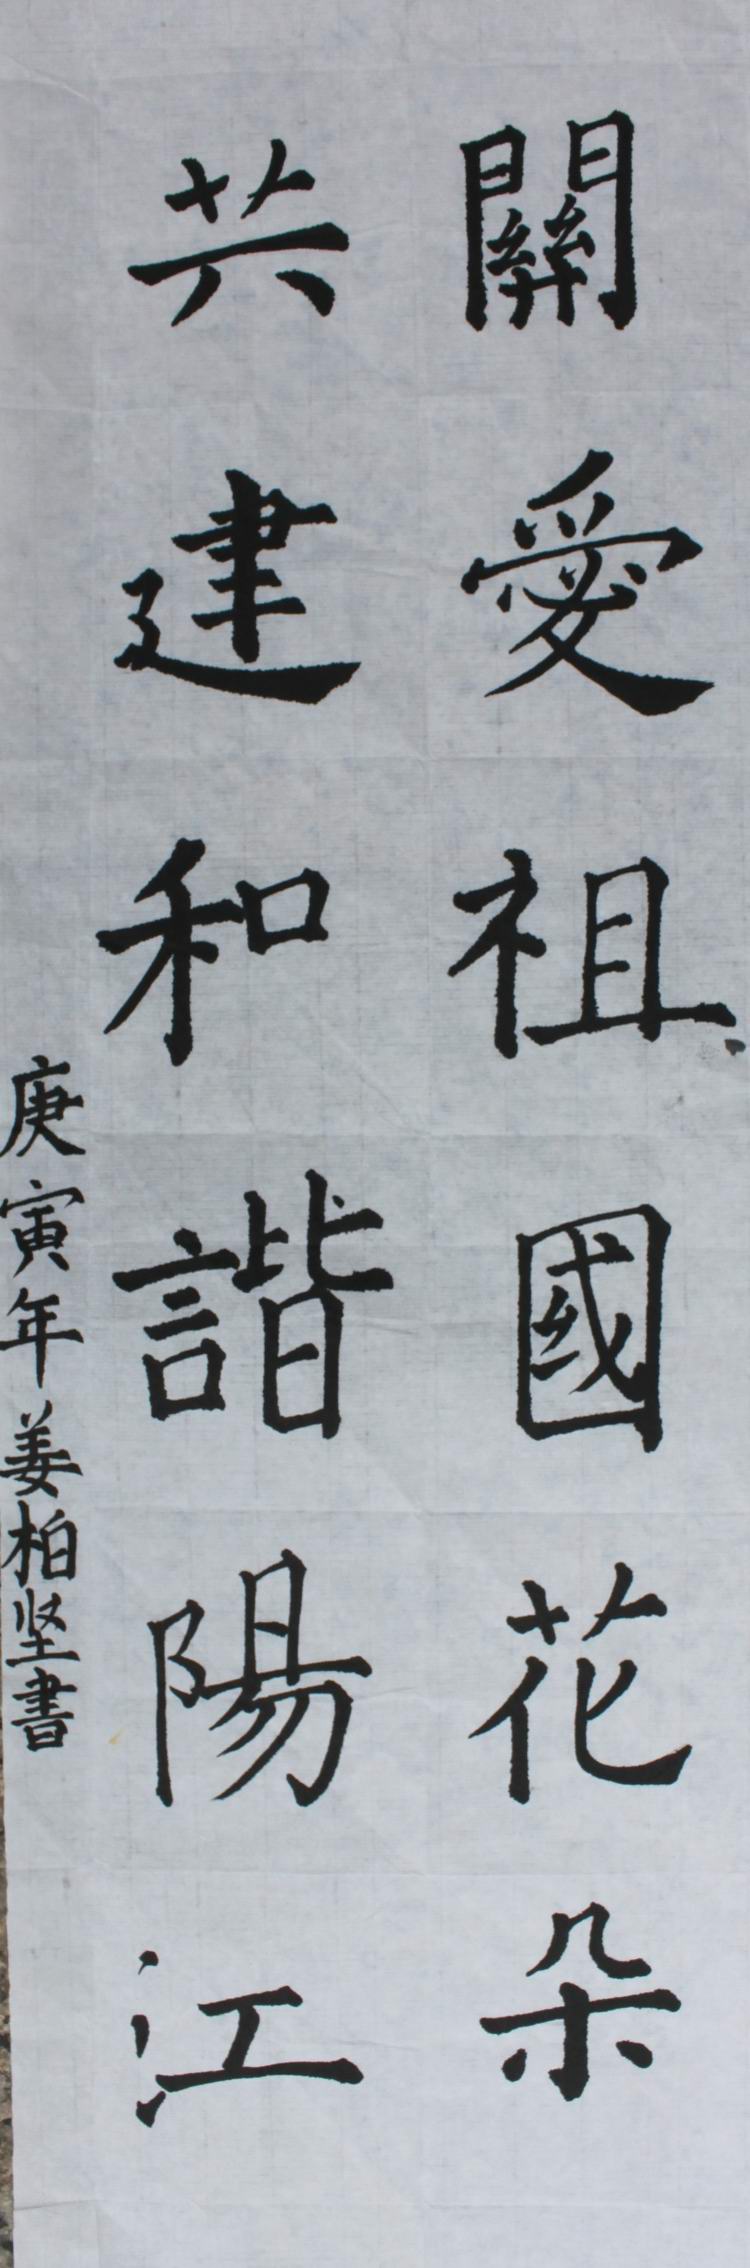 關愛祖國花朵
共建和諧陽江
庚寅年姜柏坚書